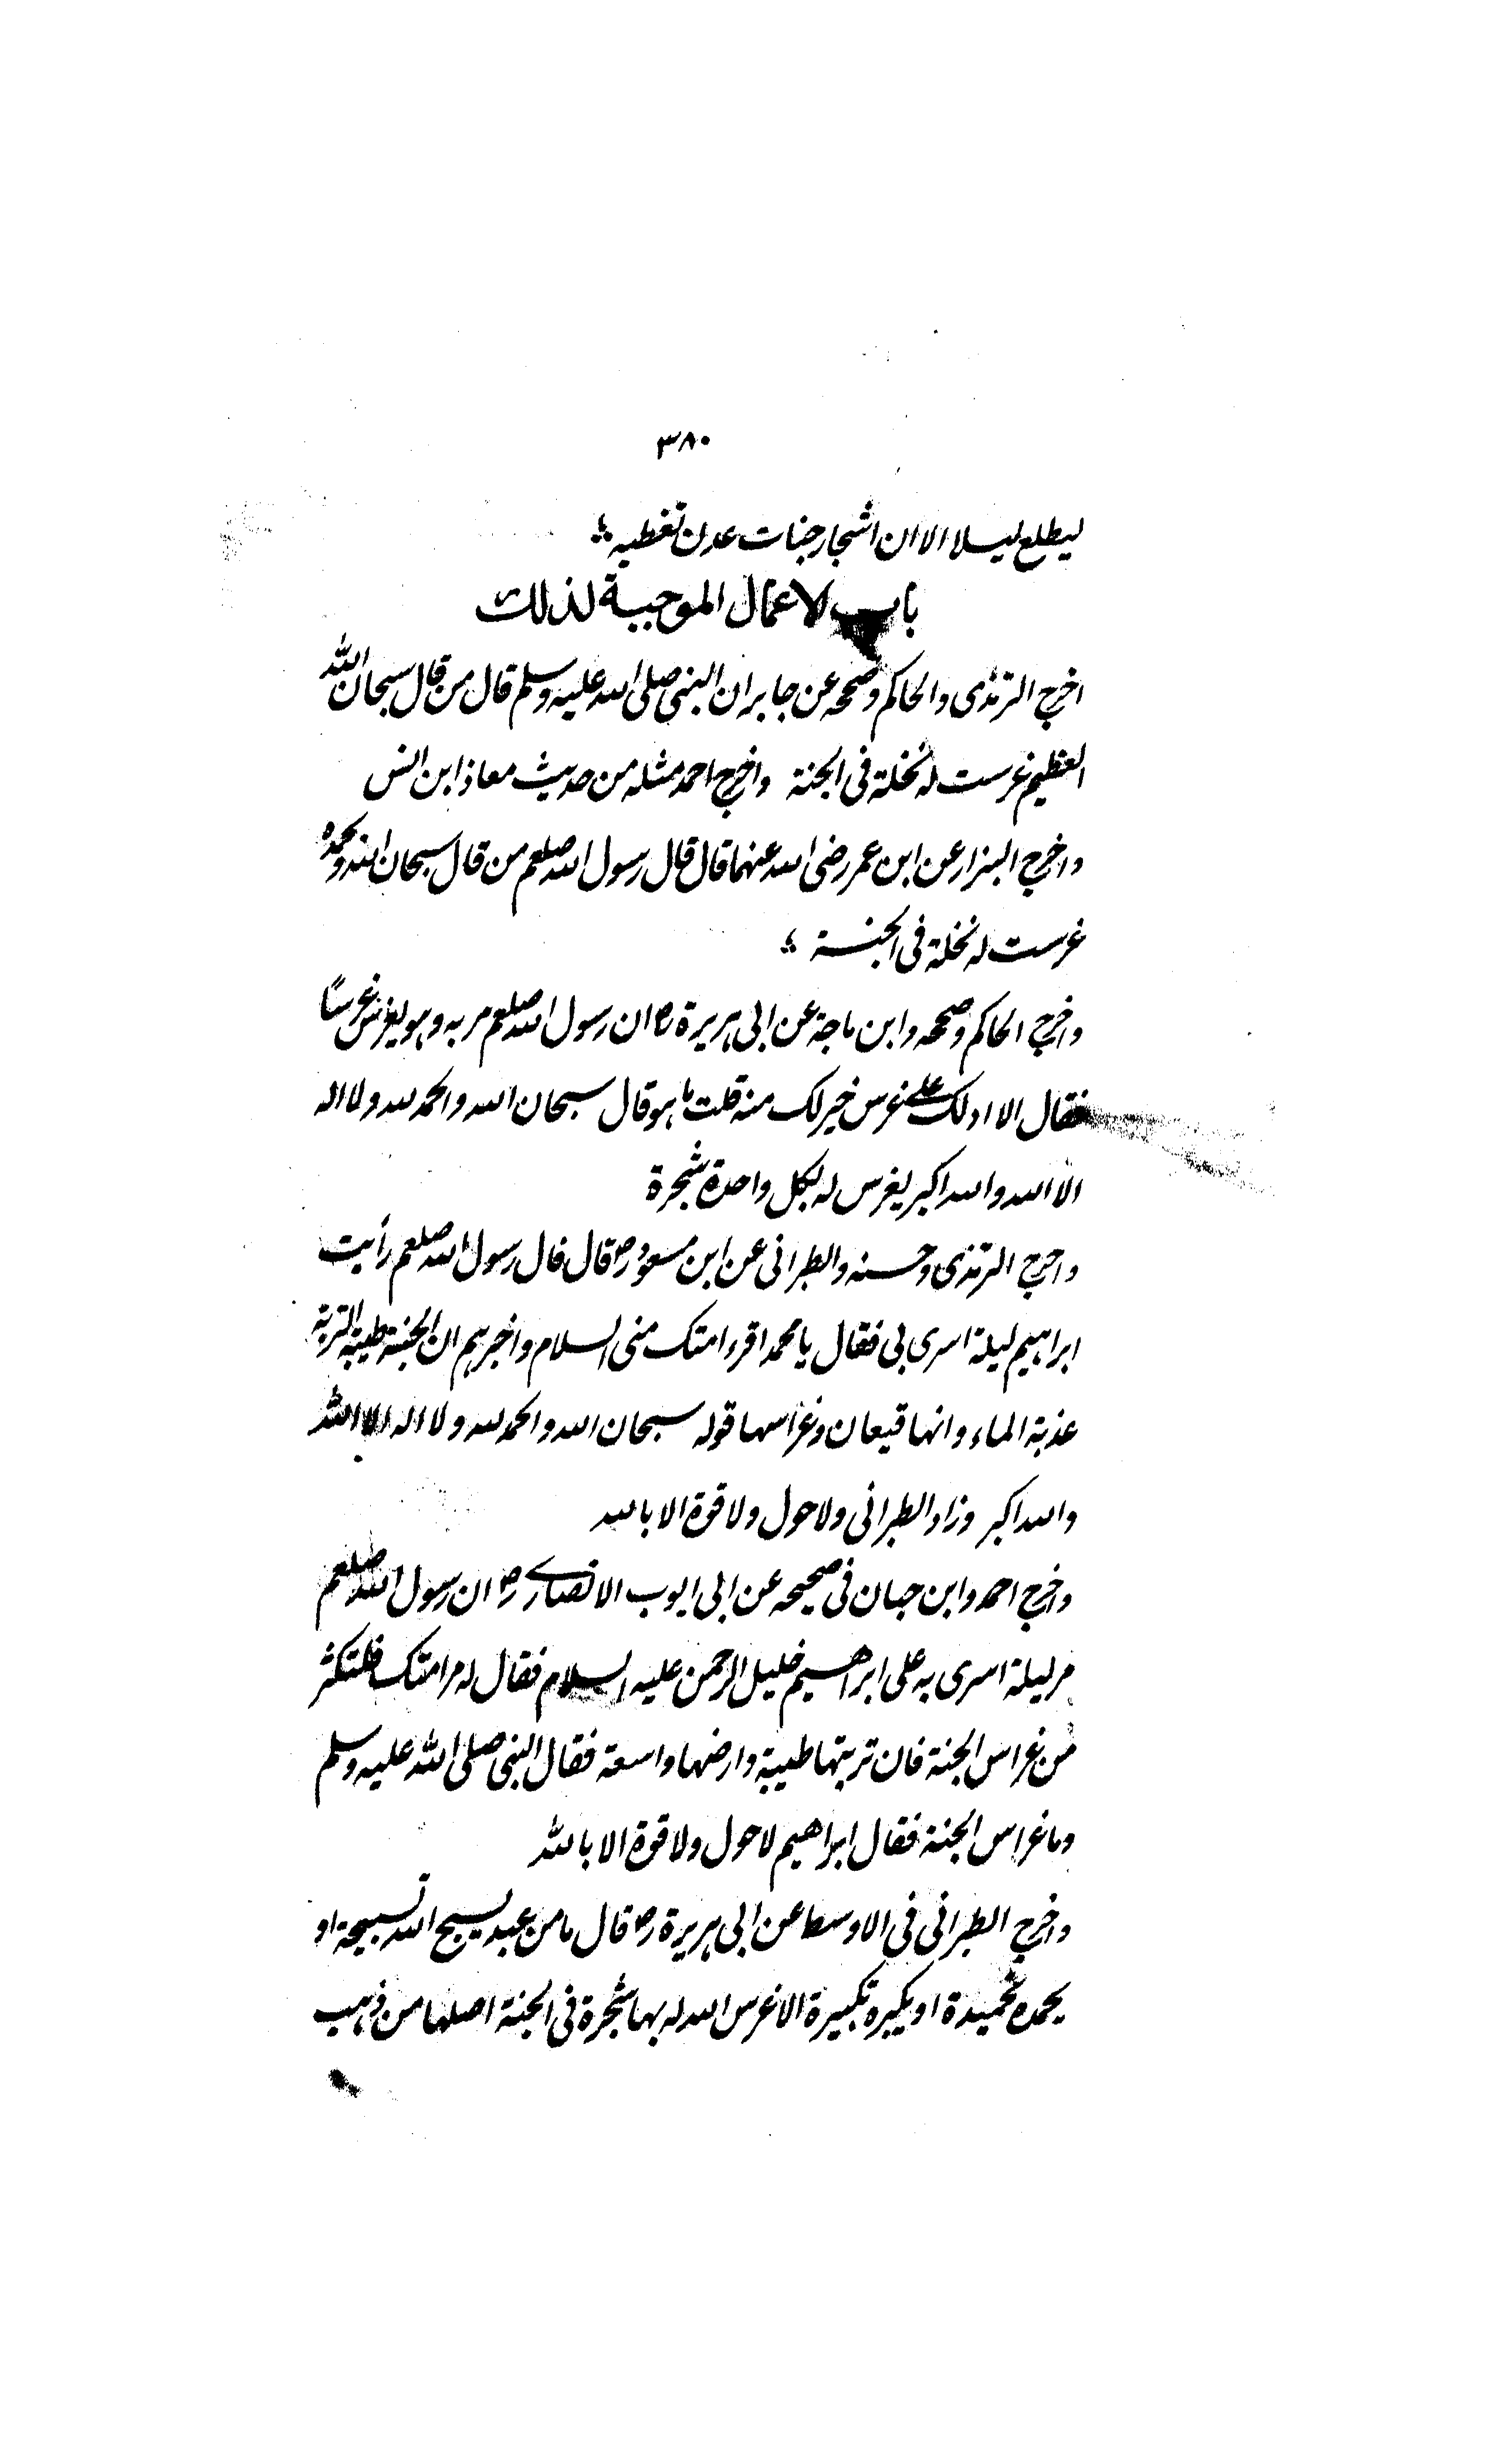 ٣٨٠
ليطلع ليلا الا ان اشجار جنات عدن تغطيه
باب لاعمال الموجبة لذلك
اخرج الترمذى والحاكم وصححه عن جابر ان النبى صلى الله عليه وسلم قال من قال سبحان الله
العظيم غرست له نخلة فى الجنة واخرج احمد مثله من حديث معاذ ابن انس
واخرج البزار عن ابن عمر رضى الله عنهما قال قال رسول الله صلعم من قال سبحان الله وبحمده
غرست له نخلة فى الجنة
واخرج الحاكم وصححه وابن ماجة عن ابى هريرة رض ان رسول الله صلعم مر به وهو يغرس غرسًا
فقال الا ادلك على غرس خير لك منه قلت ما هو قال سبحان الله والحمد لله ولا اله
الا الله والله اكبر يغرس له بكل واحدة شجرة
واخرج الترمذى وحسنه والطبرانى عن ابن مسعود رض قال قال رسول الله صلعم رأيت
ابراهيم ليلة اسرى بى فقال يا محمد اقرء امتك منى السلام واخبرهم ان الجنة طيبة التربة
عذبة الماء وانها قيعان وغراسها قوله سبحان الله والحمد لله ولا اله الا الله
والله اكبر وزاد الطبرانى ولا حول ولا قوة الا بالله
واخرج احمد وابن حبان فى صحيحه عن ابى ايوب الانصارى رض ان رسول الله صلعم
مر ليلة اسرى به على ابراهيم خليل الرحمن عليه السلام فقال له مر امتك فلتكثر
من غراس الجنة فان تربتها طيبة وارضها واسعة فقال النبى صلى الله عليه وسلم
وما غراس الجنة فقال ابراهيم لا حول ولا قوة الا بالله
واخرج الطبرانى فى الاوسط عن ابى هريرة رض قال ما من عبد يسبح الله تسبيحة او
يحمده تحميدة او يكبره تكبيرة الا غرس الله له بها شجرة فى الجنة اصلها من ذهب